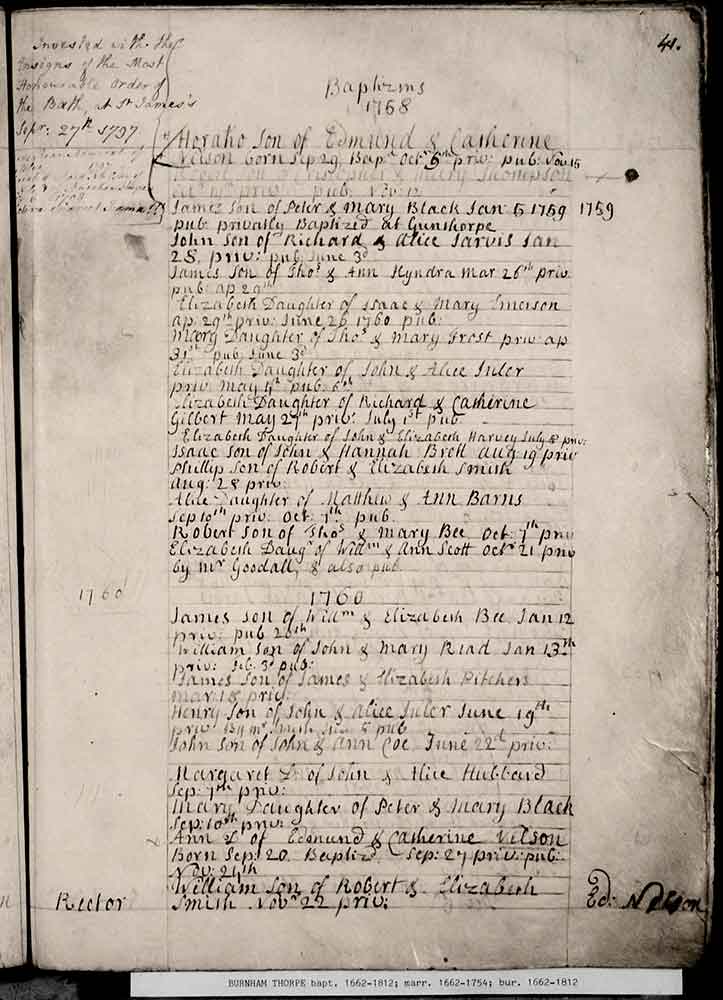 41.
Invested with the
Ensigns of the Most
Honourable Order of
the Bath at St James's
Sepr: 27th 1797.
Baptizms
1758
Horatio Son of Edmund & Catherine
Nelson born Sep 29. Bap: Oct 9th priv: pub: Nov: 15
Son of & Mary Thompson
priv: pub: Nov: 12
James Son of Peter & Mary Black Jan 5 1759 1759
pub privatly Baptized at Gunthorpe
John Son of Richard & Alice Jarvis Jan
28, priv: pub June 3d
James Son of Thos & Ann Hyndra Mar 26th priv
pub: ap 29th
Elizabeth Daughter of Isaac & Mary Emerson
ap: 29th priv: June 26 1760 pub:
Mary Daughter of Thos & Mary Frost priv ap
31st pub June 3d
Elizabeth Daughter of John & Alice
priv May pub: 6th
Elizabeth Daughter of Richard & Catherine
Gilbert May 27th priv: July 1st pub
Elizabeth Daughter of John & Elizabeth Harvey July 8 priv:
Isaac Son of John & Hannah Aug 19 priv
Phillip Son of Robert & Elizabeth Smith
Aug: 28 priv:
Alice Daughter of Matthew & Ann Barns
Sep 10th priv: Oct: 7th pub
Robert Son of Thos & Mary Bee Oct: 7th priv
Elizabeth Daugr of Willm & Ann Scott Octr 21 priv
by Mr Goodall, & also pub
1760 1760
James Son of Willm & Elizabeth Bee Jan 12
priv: pub 20th
William Son of John & Mary Read Jan 13th
priv: feb. 3d pub:
James Son of James & Elizabeth Pitchers
Mar: 18 priv:
Henry Son of John & Alice June 19th
priv By Mr Smith pub
John Son of John & Ann Coe June 22d priv:
Margaret D of John & Alice Hubbard
Sep: 7th priv:
Mary Daughter of Peter & Mary Black
Sep: 10th priv:
Ann D of Edmund & Catherine Nelson
Born Sep: 20 Baptizd Sep: 27 priv: pub:
Nov: 24th
William Son of Robert & Elizabeth
Rector Smith Novr 22 priv: Ed: Nelson
BURNHAM THORPE bapt. 1662-1812; marr. 1662-1754; bur. 1662-1812